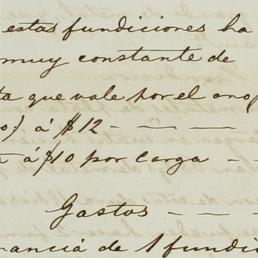 estas fundiciones ha
muy constante de
ta que vale por el oro
á $12 — — —
á $10 por carga — —
Gastos — — —
nancia de 1 fundi